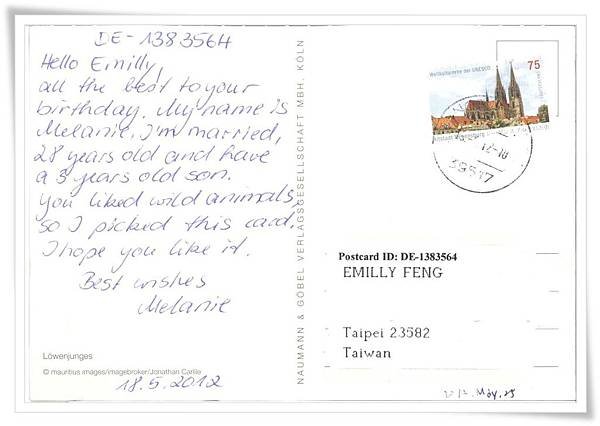 DE-1383564
Hello Emilly,
all the best to your
birthday. My name is
Melanie. I'm married,
28 years old and have
a 3 years old son.
You liked wild animals,
so I picked this card.
I hope you like it.
Best wishes
Melanie
Löwenjunges
© mauritius images/imagebroker/Jonathan Carlile
18.5.2012
NAUMANN & GÖBEL VERLAGSGESELLSCHAFT MBH, KÖLN
Weltkulturerbe der UNESCO
75
Postcard ID: DE-1383564
EMILLY FENG
Taipei 23582
Taiwan
May. 25